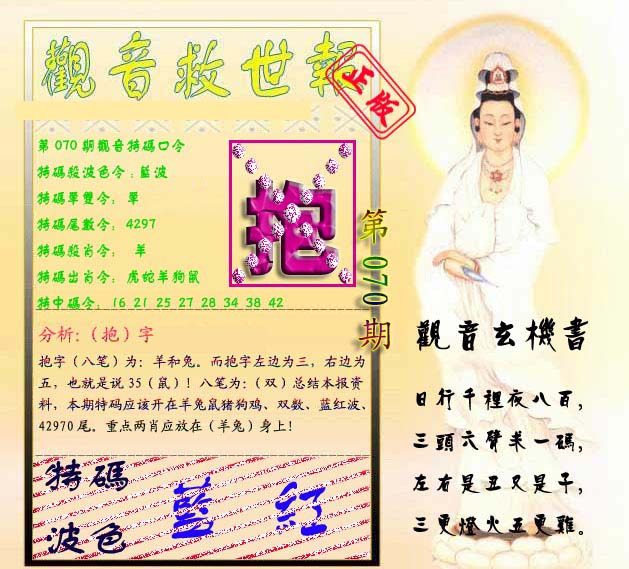 觀音救世報
正版
第070期觀音特碼口令
特碼殺波色令:藍波
特碼單雙令: 單
特碼尾數令: 4297
特碼殺肖令: 羊
特碼出肖令: 虎蛇羊狗鼠
特中碼令: 16 21 25 27 28 34 38 42
抱
第070期
分析:（抱）字
抱字（八笔）为：羊和兔。而抱字左边为三，右边为
五，也就是说35（鼠）！八笔为：（双）总结本报资
料，本期特码应该开在羊兔鼠猪狗鸡、双数、蓝红波、
42970尾。重点两肖应放在（羊兔）身上！
特碼
波色
藍 紅
觀音玄機書
日行千裡夜八百，
三頭六臂米一碼，
左右是丑又是子，
三更燈火五更雞。